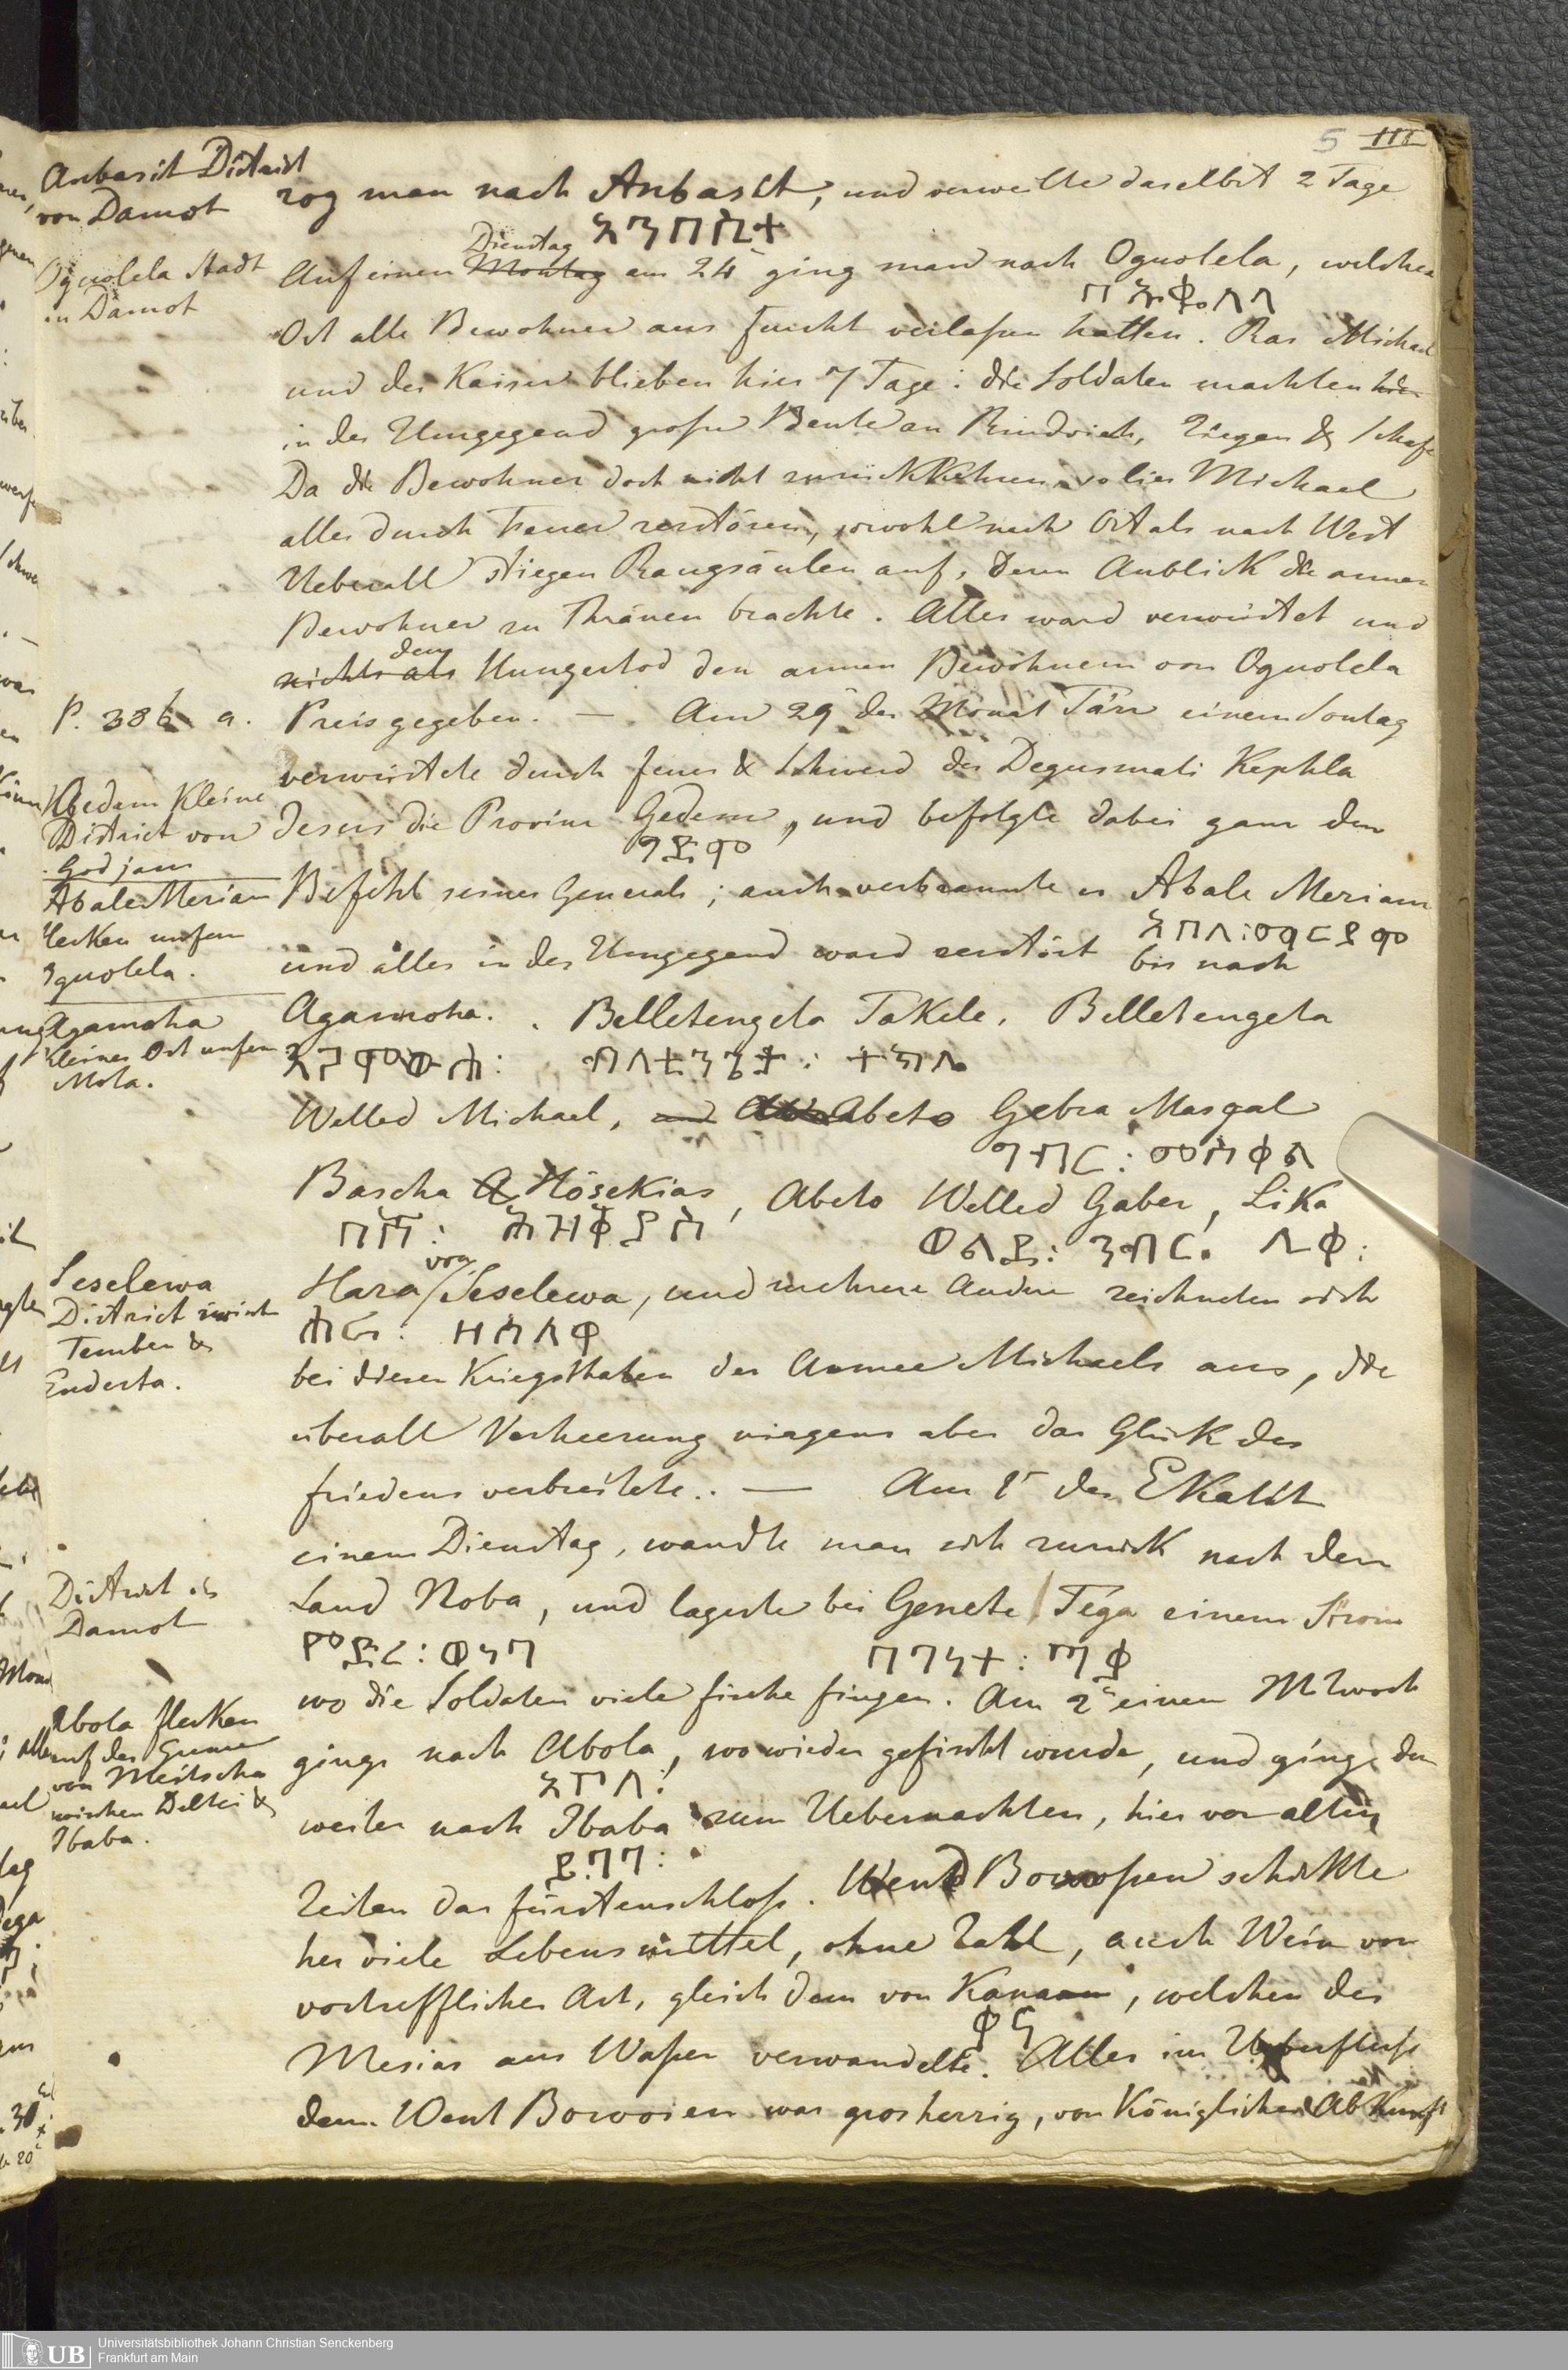 5 III
Anbasit District
von Damot
zog man nach Anbasit, und verweilte daselbst 2 Tage
አንበሲት
Dienstag
Oguolela Stadt
in Damot
Auf einen Montag am 24 ging man nach Oguolela, welchen
Ort alle Bewohner aus Furcht verlaßen hatten. Ras Michael
und der Kaiser blieben hier 7 Tage: die Soldaten machten hier
in der Umgegend große Beute an Rindvieh, Ziegen & Schafe
Da die Bewohner doch nicht zurückkehren, so lies Michael
alles durch Feuer zerstören, sowohl nach Ost als nach West
Ueberall stiegen Raugsäulen auf, deren Anblick die armen
Bewohner zu Thränen brachte. Alles ward verwüstet und
dem
nichts als Hungertod den armen Bewohnern von Oguolela
P. 386 a.
Preis gegeben. — Am 29 des Monat Tärr einem Sontag
verwüstete durch feuer & Schwerd der Degusmati Kephla
Gedem Kleine
District von
Godjam
Jesus die Provinz Gedem, und befolgte dabei ganz den
ግደም
Abale Meriam
flecken unfern
Oguolela.
Befehl seines Generals; auch verbrannte er Abale Meriam
አበለ፡ማርያም
und alles in der Umgegend ward zerstört bis nach
Agamoha
kleiner Ort unfern
Mota.
Agamoha. Belletengeta Takele, Belletengeta
Welled Michael, und Abeto Gebra Masgal
ገብር፡መስቀል
Bascha Hösekias, Abeto Welled Gaber, Lika
ባሻ፡ ሕዝቅያስ
ወልደ፡ ጋብር፡ ሊቀ፡
von
Seselewa
District zwisch
Temben &
Enderta.
Hara Seselewa, und mehrere Andere zeichneten sich
ሐራ፡ ዘሰለዋ
bei diesen Kriegsthaten der Armee Michaels aus, die
überall Verheerung nirgens aber das Glück des
friedens verbreitete. — Am 1 des Ekatit
einem Dienstag, wandte man sich zurück nach dem
District in
Damot
Land Noba, und lagerte bei Genete Tega einem Strom
ምድረ፡ ወናባ
በገነት፡
wo die Soldaten viele fische fingen. Am 2 einem Mitwoch
Abola flecken
auf der Grenze
von Meitscha
zwischen Delbei &
Ibaba.
gings nach Abola, wo wieder gefischt wurde, und ging dan
አቦላ፡
weiter nach Ibaba zum Uebernachten, hier vor alten
ይባባ፡
Zeiten das fürstenschloß. Wend Bowoßen schickte
her viele Lebensmittel, ohne Zahl, auch Wein von
vortrefflicher Art, gleich dem von Kanaan, welchen der
ቃና
Mesias aus Waßer verwandelte. Alles im Ueberfluß
den Went Bowosen war grosherzig, von Königlicher Abkunft
Universitätsbibliothek Johann Christian Senckenberg
Frankfurt am Main
UB